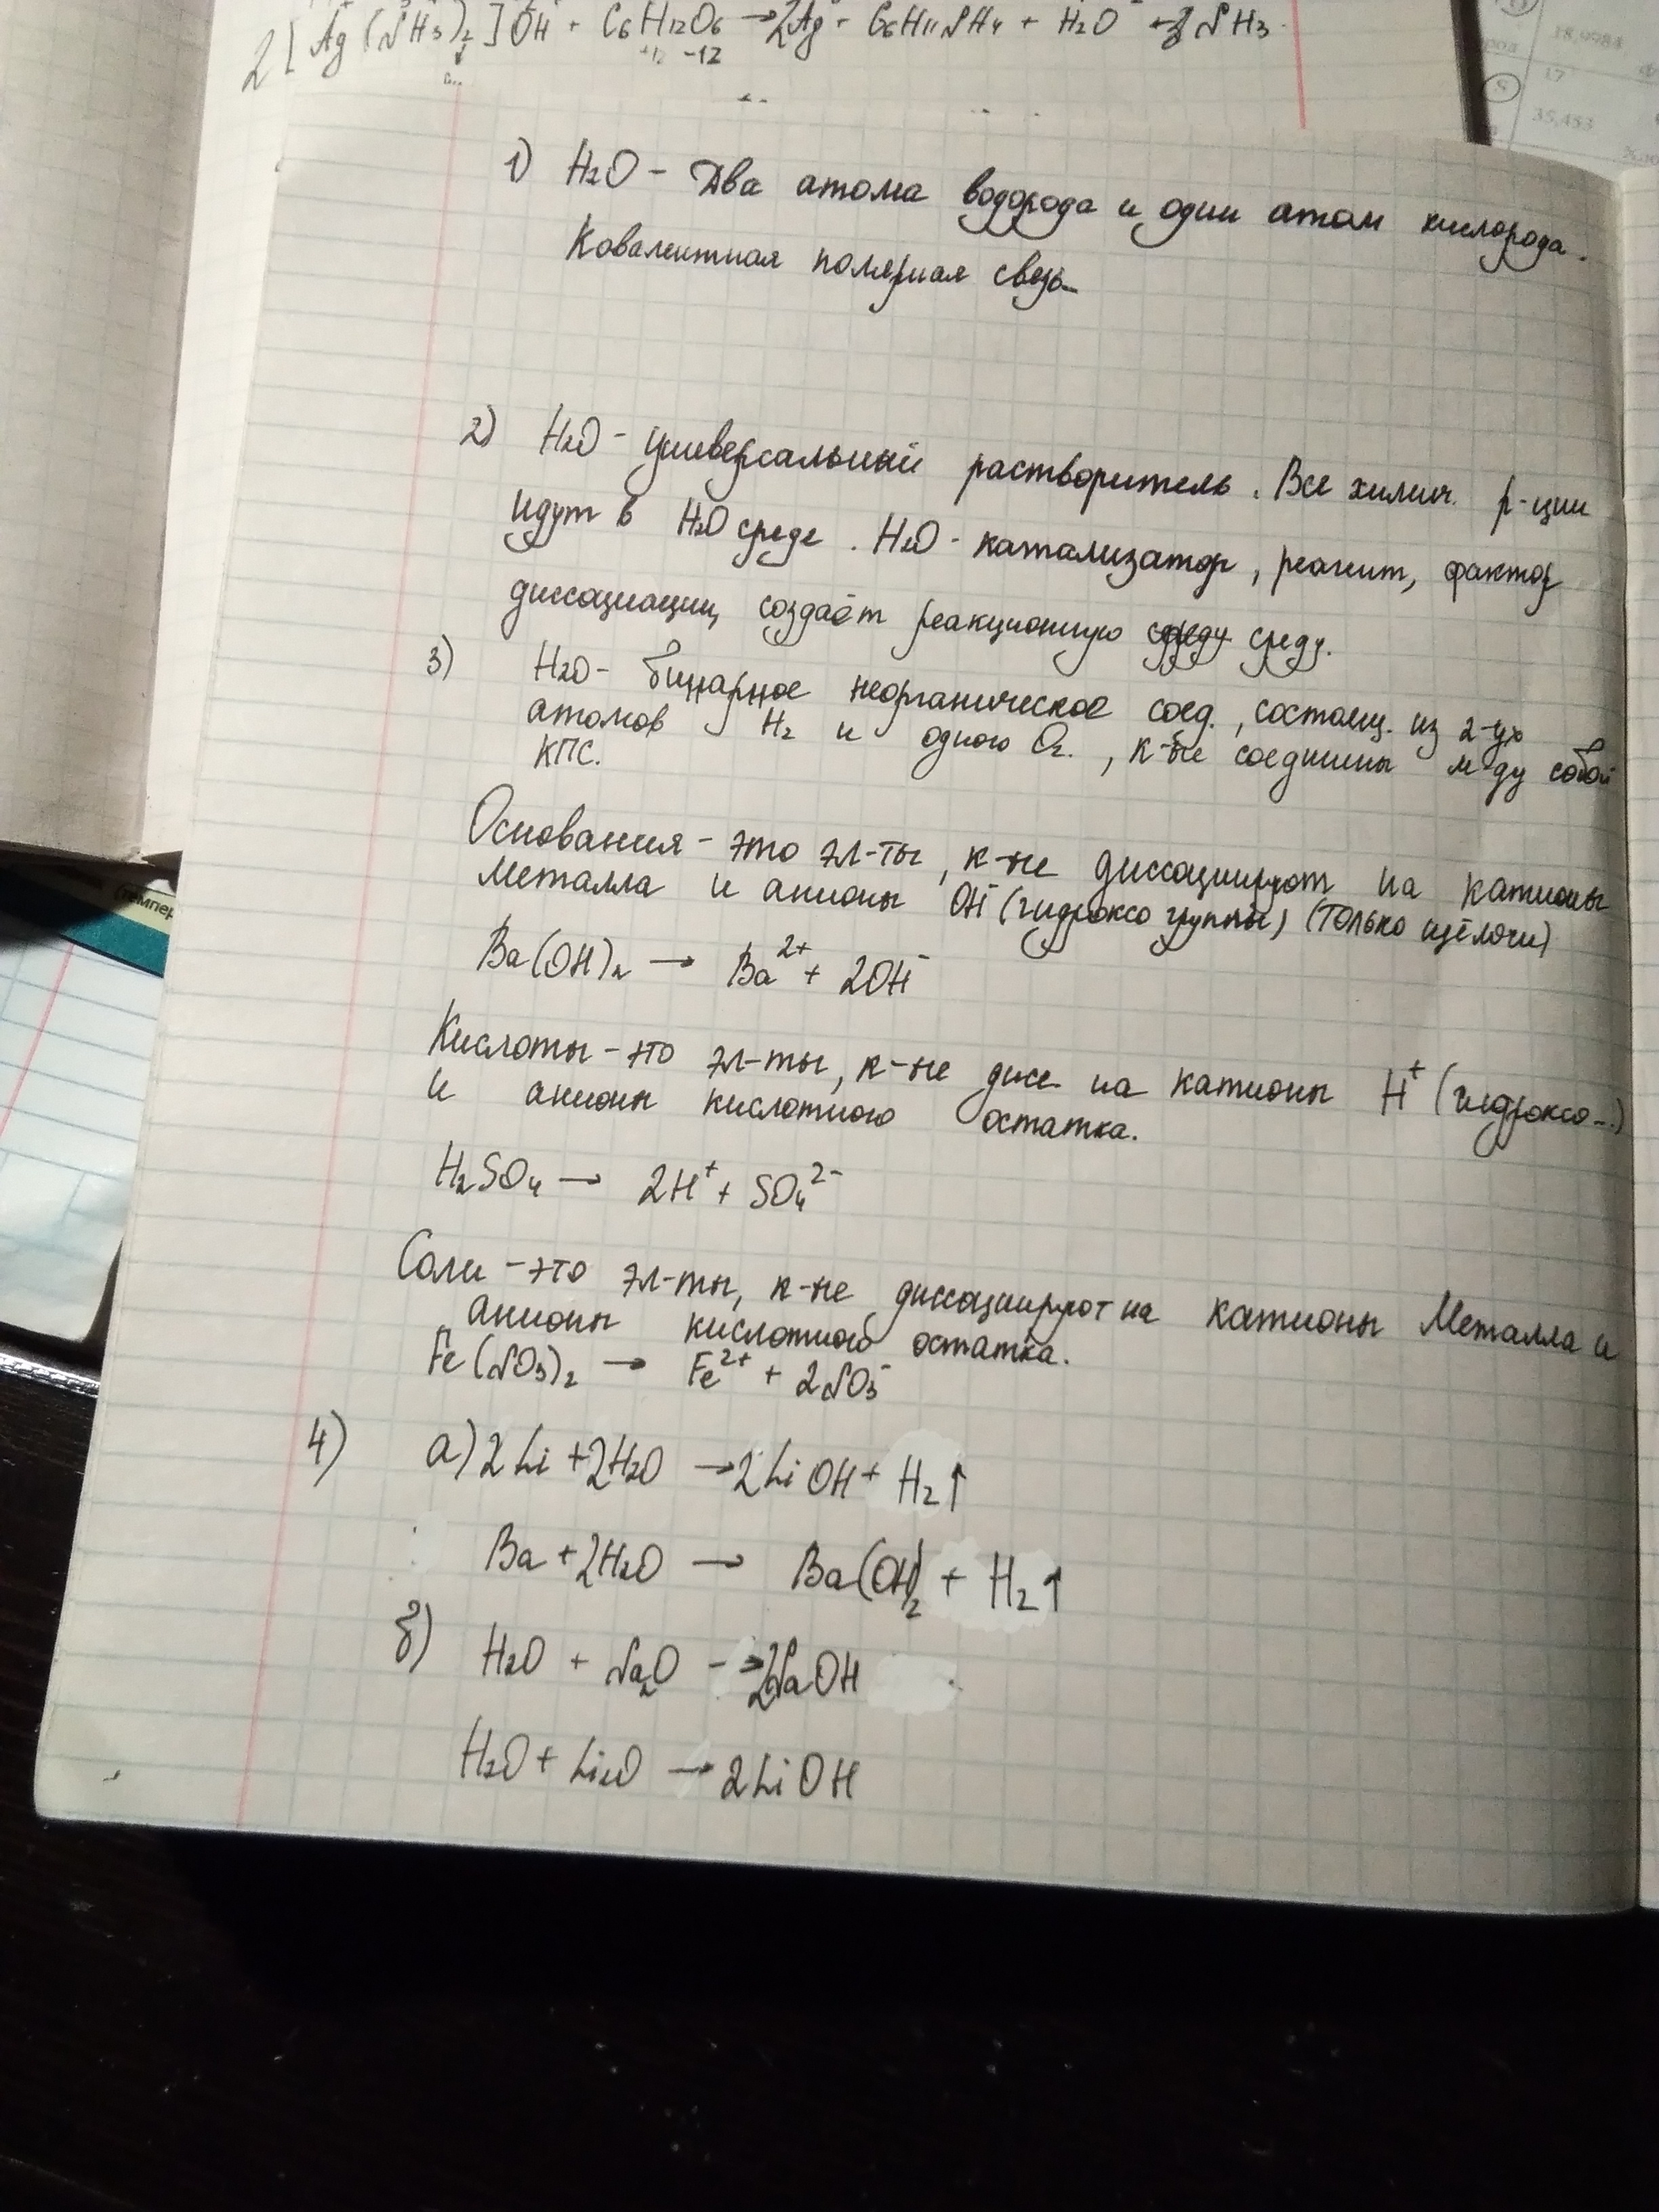 2[Ag(NH3)2]OH + C6H12O6 → 2Ag + C6H11NH4 + H2O + 3NH3
+12 -12
18,9984
17
35,453
1) H2O - Два атома водорода и один атом кислорода.
Ковалентная полярная связь
2) H2O - универсальный растворитель. Все химич. р-ции
идут в H2O среде. H2O - катализатор, реагент, фактор
диссоциации, создаёт реакционную среду среду.
3) H2O - бинарное неорганическое соед., состоящ. из 2-ух
атомов H2 и одного O2., к-ые соединены м-ду собой
КПС.
Основания - это эл-ты, к-ые диссоциируют на катионы
металла и анионы OH⁻ (гидроксо группы) (только щёлочи)
Ba(OH)2 → Ba²⁺ + 2OH⁻
Кислоты - это эл-ты, к-ые дисс. на катионы H⁺ (гидроксо-..)
и анионы кислотного остатка.
H2SO4 → 2H⁺ + SO4²⁻
Соли - это эл-ты, к-ые диссоциируют на катионы металла и
анионы кислотного остатка.
Fe(NO3)2 → Fe²⁺ + 2NO3⁻
4) а) 2Li + 2H2O → 2LiOH + H2↑
Ba + 2H2O → Ba(OH)2 + H2↑
б) H2O + Na2O → 2NaOH
H2O + Li2O → 2LiOH